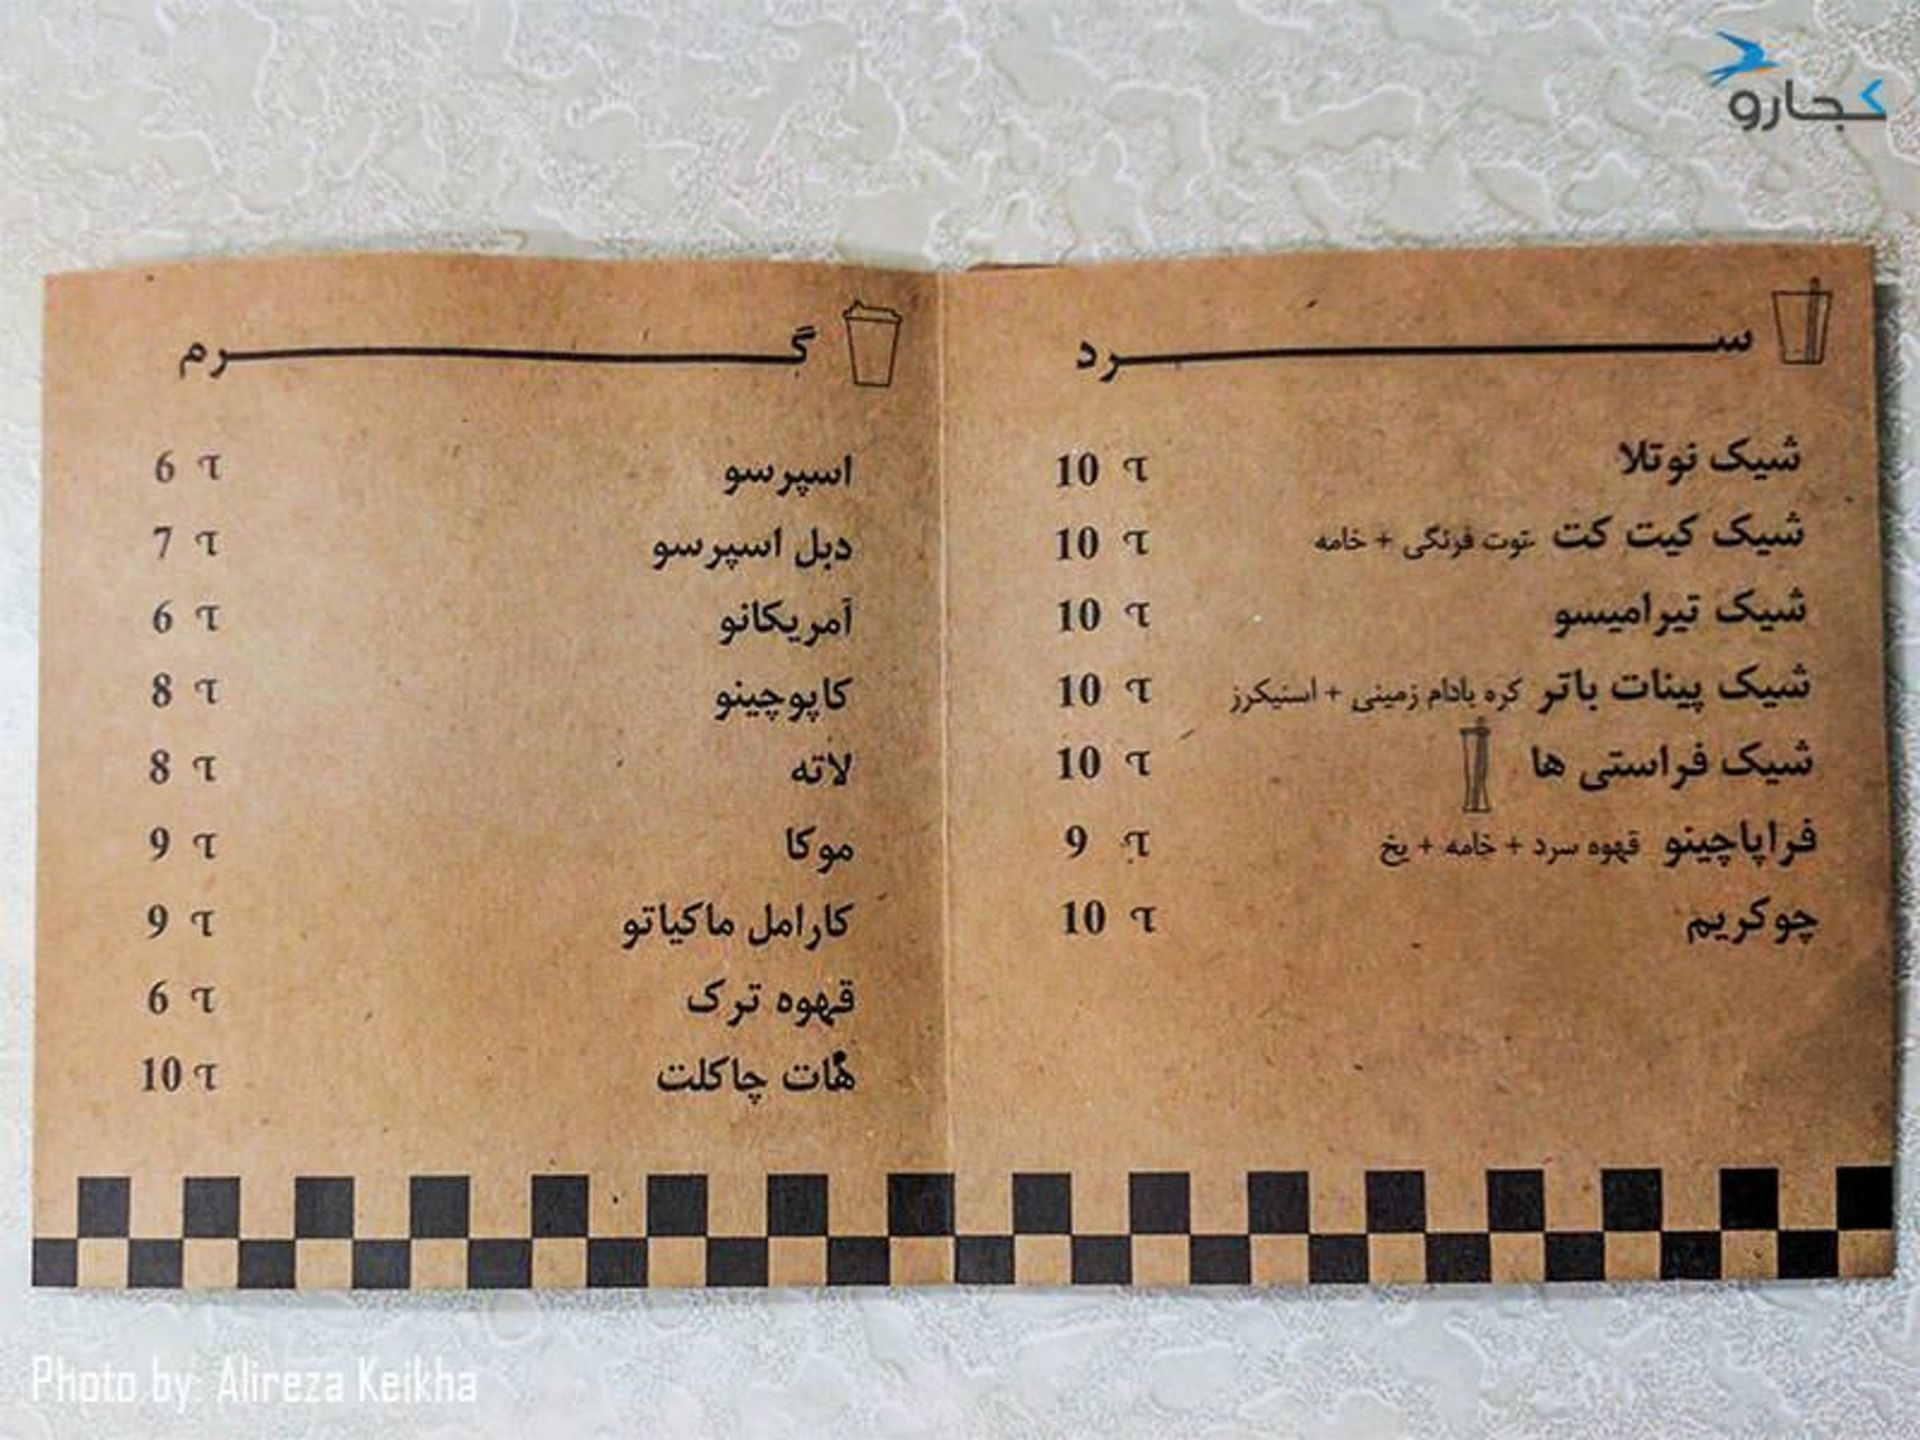 کجارو
سرد
شیک نوتلا 10 т
شیک کیت کت توت فرنگی + خامه 10 т
شیک تیرامیسو 10 т
شیک پینات باتر کره بادام زمینی + اسنیکرز 10 т
شیک فراستی ها 10 т
فراپاچینو قهوه سرد + خامه + یخ 9 т
چوکریم 10 т
گرم
اسپرسو 6 т
دبل اسپرسو 7 т
آمریکانو 6 т
کاپوچینو 8 т
لاته 8 т
موکا 9 т
کارامل ماکیاتو 9 т
قهوه ترک 6 т
هات چاکلت 10 т
Photo by: Alireza Keikha